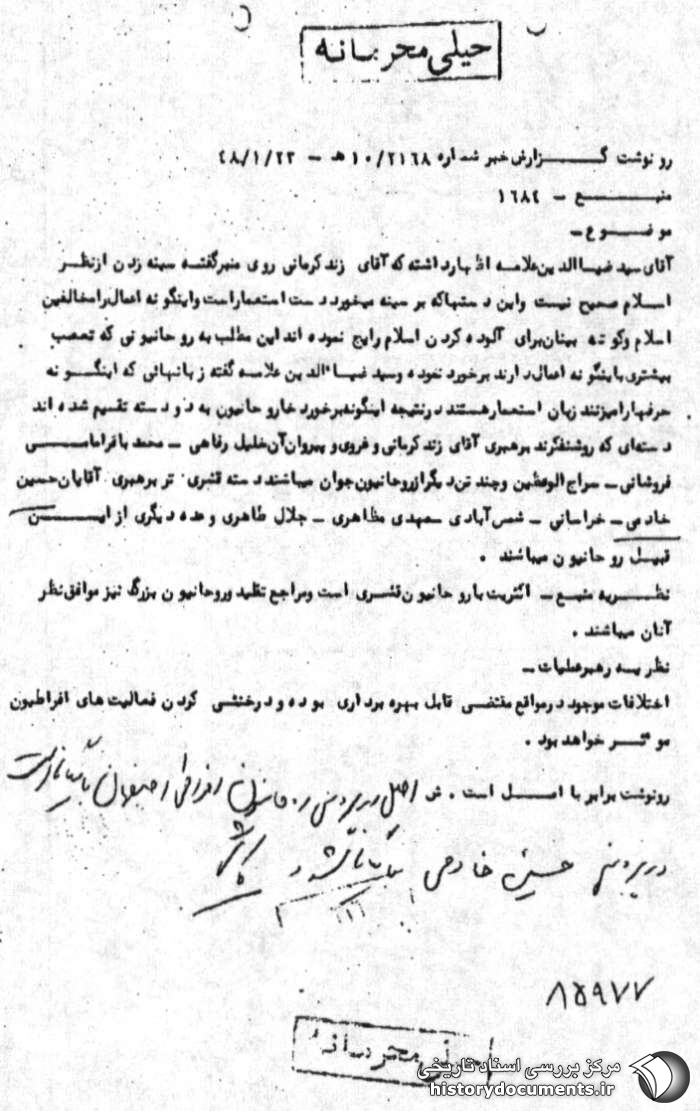 خیلی محرمانه
رونوشت گـــزارش خبر شماره ۱۰/۲۱۶۸ هـ – ۴۸/۱/۲۳
منبـــــع – ۱۶۸۴
موضـــوع –
آقای سید ضیاالدین علامه اظهار داشته که آقای زند کرمانی روی منبر گفته سینه زدن از نظر
اسلام صحیح نیست و این دستهاکه بر سینه میخورد دست استعمار است و اینگونه اعمال را مخالفین
اسلام و کوته بینان برای آلوده کردن اسلام رایج نموده اند این مطلب به روحانیونی که تعصب
بیشتری باینگونه اعمال دارند برخورد نموده و سید ضیاالدین علامه گفته زبانهائی که اینگونه
حرفها را میزنند زبان استعمار هستند در نتیجه اینگونه برخوردها روحانیون به دو دسته تقسیم شده اند
دسته‌ای که روشنفکرند برهبری آقای زند کرمانی و فروی و پیروان آن خلیل رفاهی – محمد باقر امامـــی
فروشانی – سراج الوعظین و چند تن دیگر از روحانیون جوان میباشند دسته قشری تر برهبری آقایان حسین
خادمی – خراسانی – شمس آبادی – مهدی مظاهری – جلال طاهری و عده دیگری از ایـــن
قبیل روحانیون میباشند .
نظـــریه منبع – اکثریت با روحانیون قشری است و مراجع تقلید و روحانیون بزرگ نیز موافق نظر
آنان میباشند .
نظریه رهبر عملیات –
اختلافات موجود در مواقع مقتضی قابل بهره برداری بوده و در خنثی کردن فعالیت های افراطیون
موثـــر خواهد بود .
رونوشت برابر با اصل است . ش اصل در پرونده روحانیون افراطی اصفهان بایگانی است
در پرونده حسین خادمی بایگانی شود
۸۵۹۷۷
خیلی محرمانه
مرکز بررسی اسناد تاریخی
historydocuments.ir